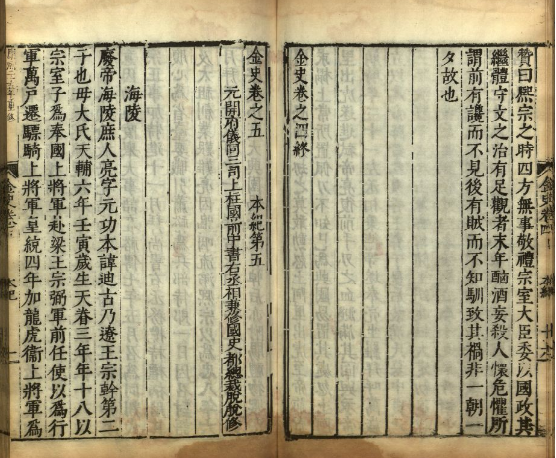 贊曰熙宗之時四方無事敬禮宗室大臣委以國政其
繼體守文之治有足觀者末年酗酒妄殺人懷危懼所
謂前有讒而不見後有賊而不知馴致其禍非一朝一
夕故也
金史卷之四終
金史卷之五
本紀第五
元開府儀同三司上柱國前中書右丞相兼修國史都總裁脫脫修
海陵
廢帝海陵庶人亮字元功本諱迪古乃遼王宗幹第二
子也母大氏天輔六年壬寅歲生天眷三年年十八以
宗室子爲奉國上將軍赴梁王宗弼軍前任使以爲行
軍萬戶遷驃騎上將軍皇統四年加龍虎衞上將軍爲